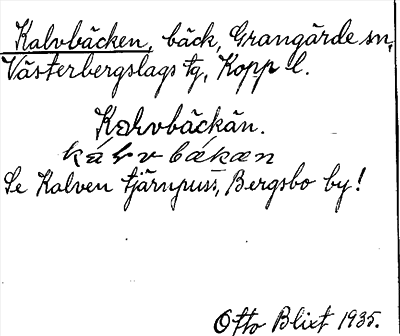 Kalvbäcken, bäck, Grangärde sn,
Västerbergslags tg, Kopp l.
Kalvbäckän.
Se Kalven tjärnpuss, Bergsbo by!
Otto Blixt 1935.